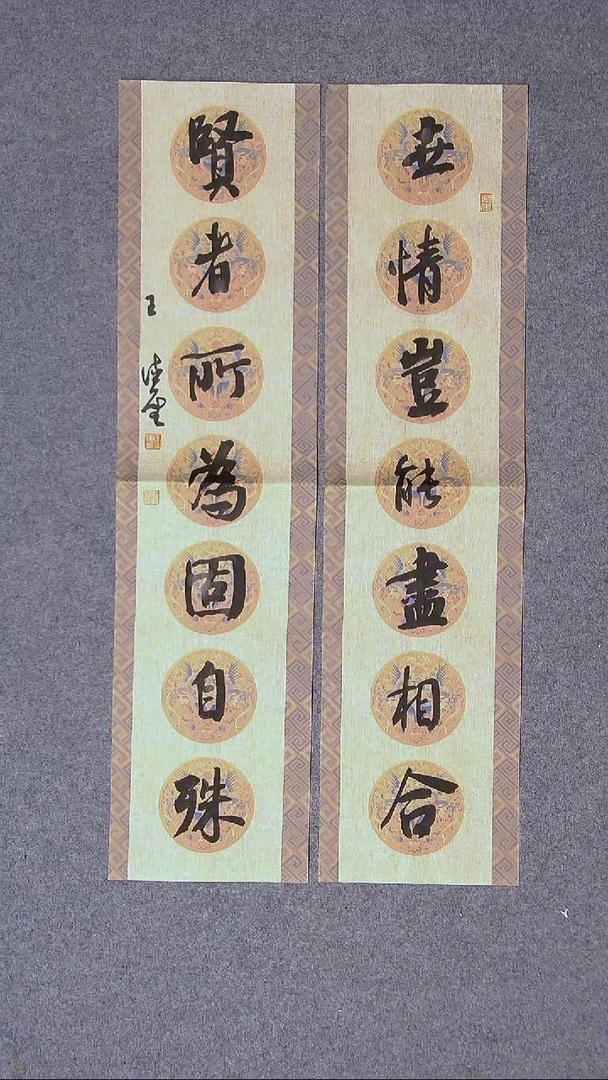 世情豈能盡相合
賢者所為固自殊
王